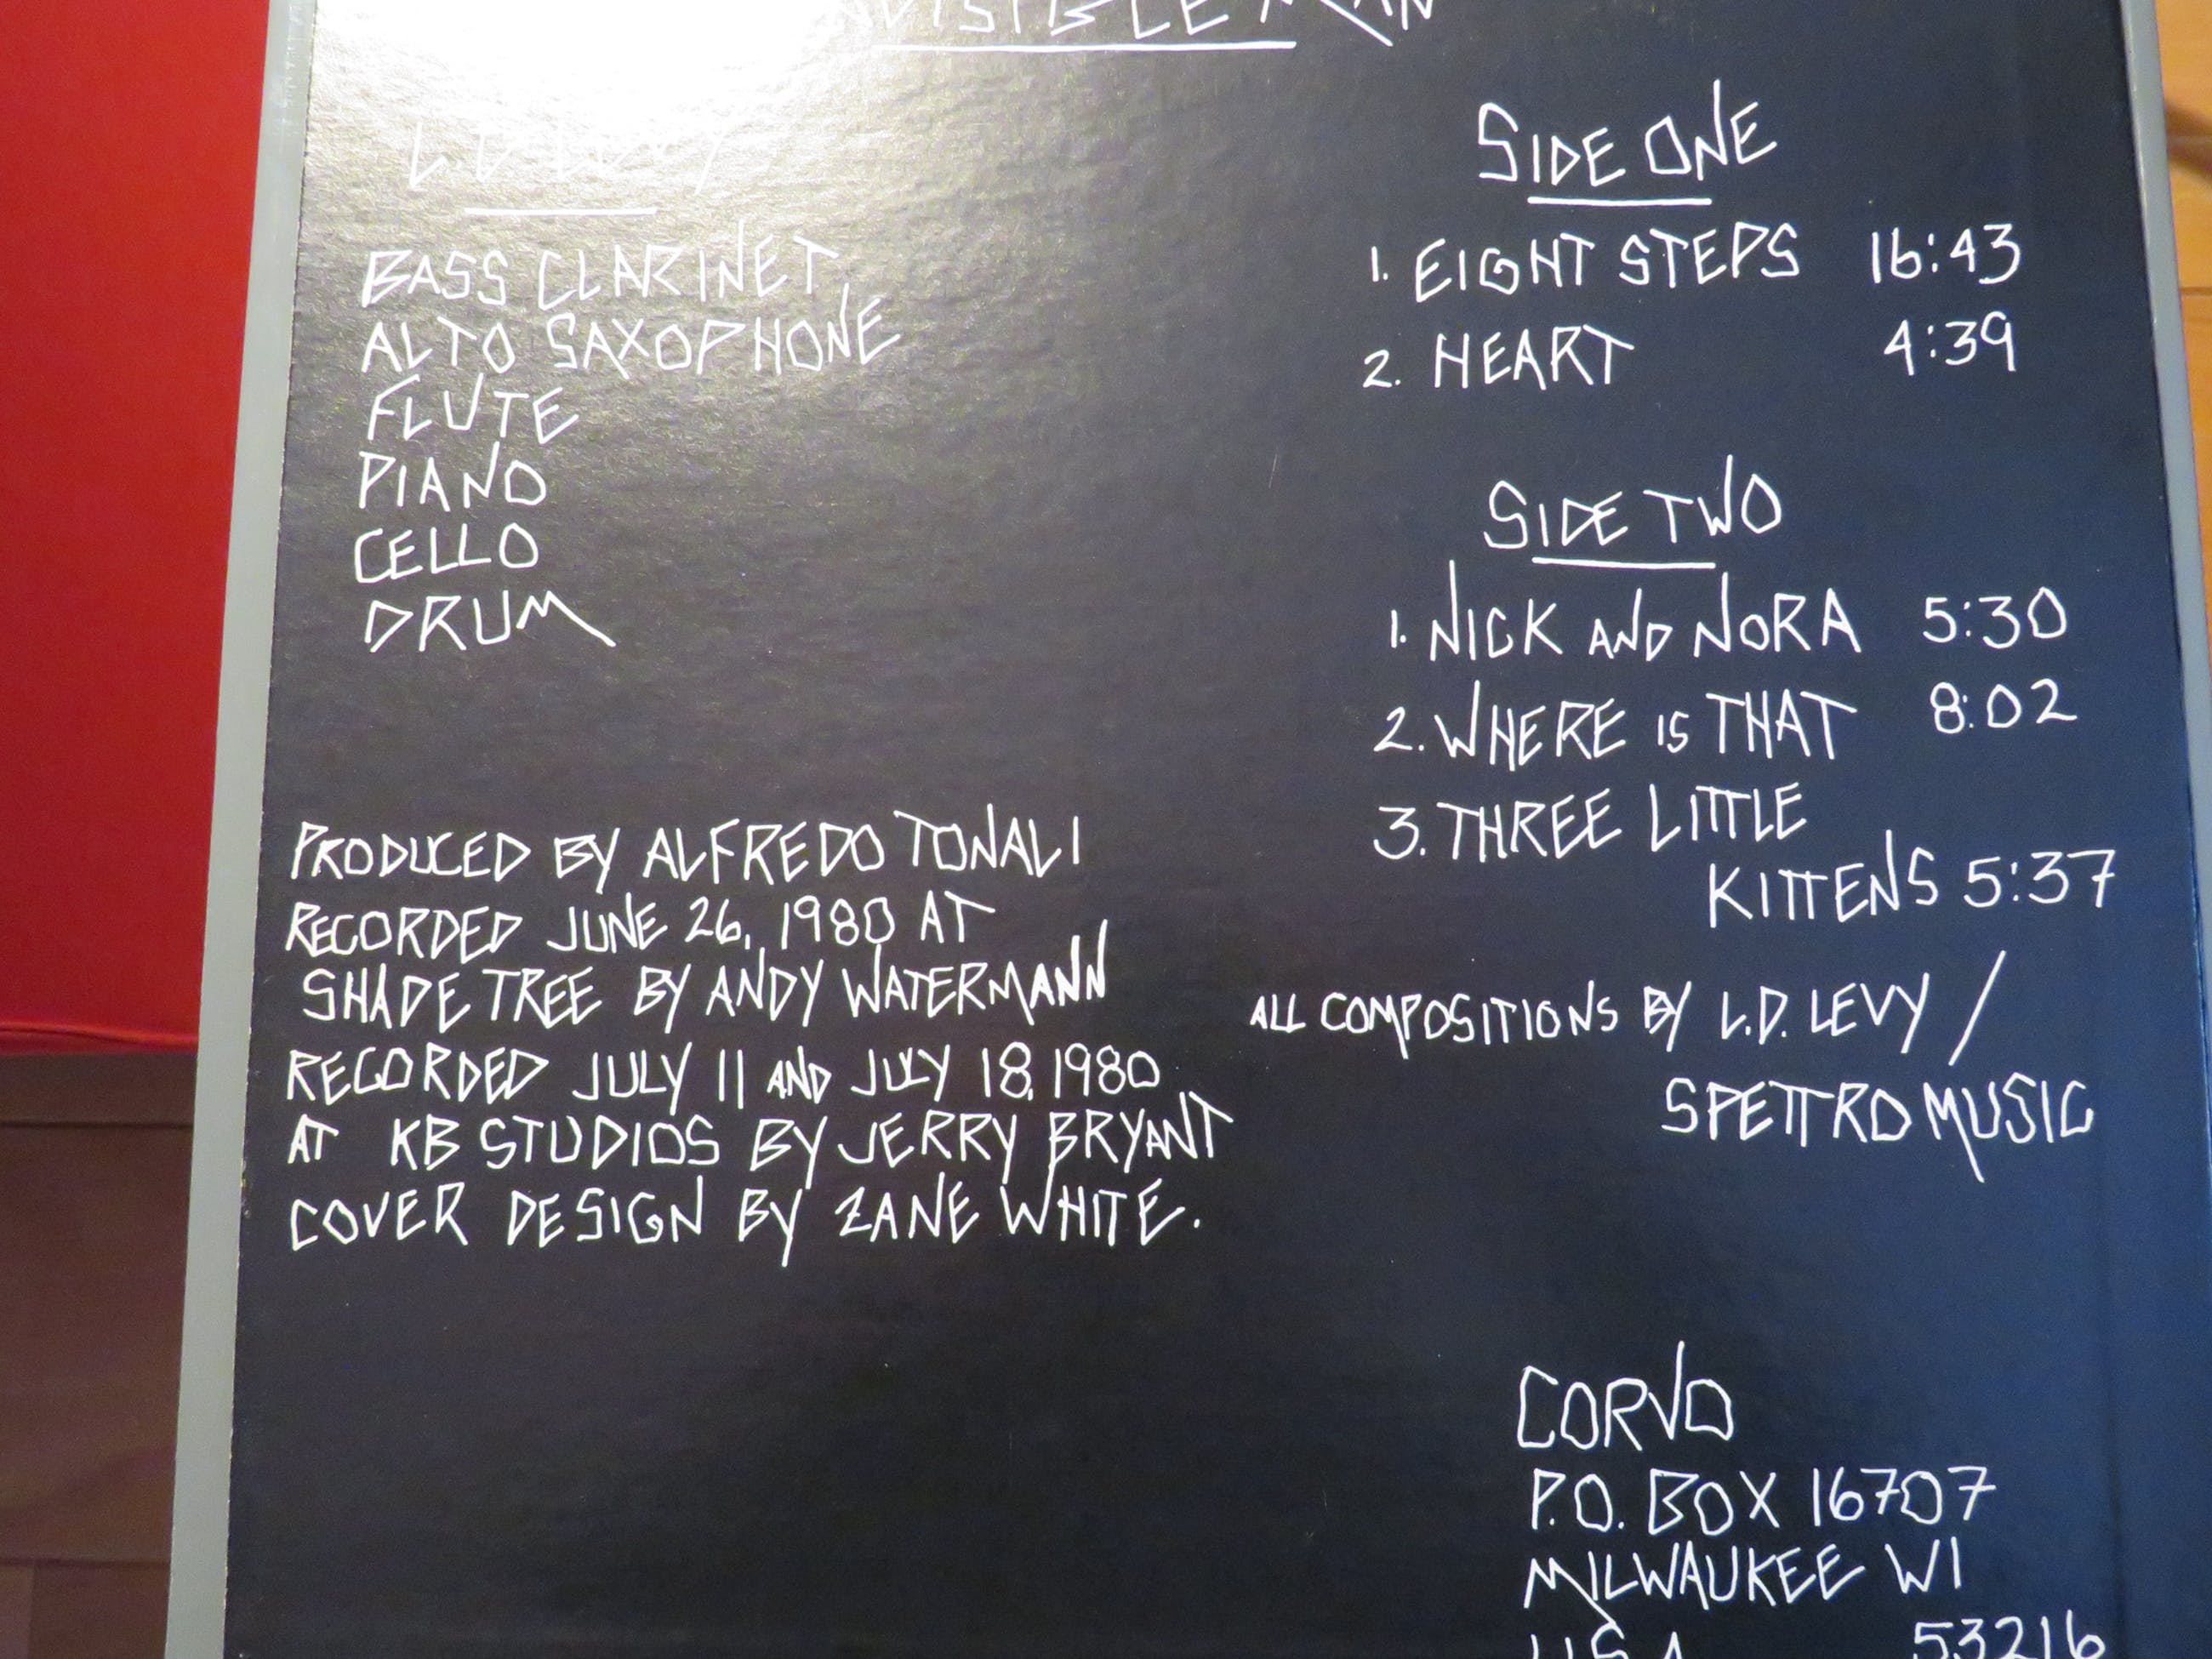 INVISIBLE MAN
L D LEVY
BASS CLARINET,
ALTO SAXOPHONE
FLUTE
PIANO
CELLO
DRUM
PRODUCED BY ALFREDO TONALI
RECORDED JUNE 26, 1980 AT
SHADE TREE BY ANDY WATERMANN
RECORDED JULY 11 AND JULY 18, 1980
AT KB STUDIOS BY JERRY BRYANT
COVER DESIGN BY ZANE WHITE.
SIDE ONE
1. EIGHT STEPS 16:43
2. HEART 4:39
SIDE TWO
1. NICK AND NORA 5:30
2. WHERE IS THAT 8:02
3. THREE LITTLE
KITTENS 5:37
ALL COMPOSITIONS BY L.D. LEVY /
SPETTRO MUSIC
CORVO
P.O. BOX 16707
MILWAUKEE WI
USA 53216